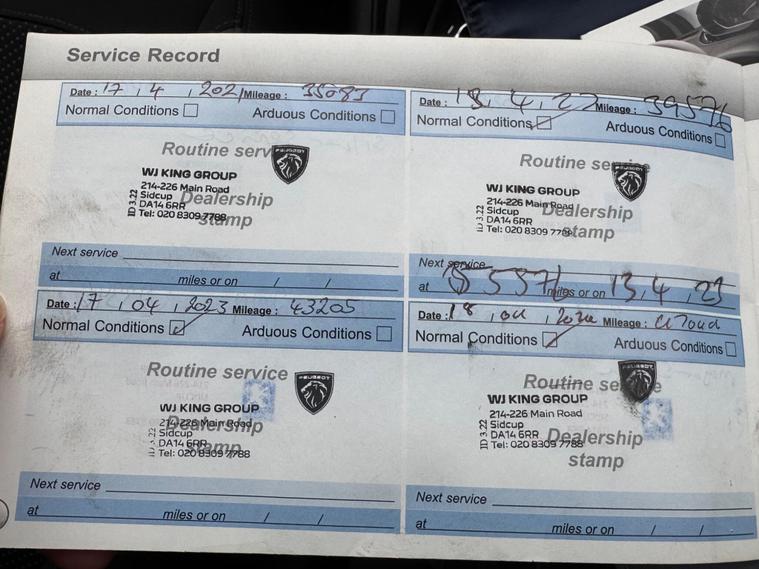 Service Record
Date : 17 , 4 , 2021 Mileage : 35083
Normal Conditions Arduous Conditions
Routine serv
PEUGEOT
WJ KING GROUP
214-226 Main Road
Sidcup
DA14 6RR
Tel: 020 8309 7788
ID 3.22
Dealership
stamp
Next service
at miles or on / /
Date : 18 , 4 , 22 Mileage : 39576
Normal Conditions Arduous Conditions
Routine service
WJ KING GROUP
214-226 Main Road
Sidcup
DA14 6RR
Tel: 020 8309 7788
ID 3.22
Dealership
stamp
Next service
at miles or on 13 , 4 , 23
Date : 17 , 04 , 2023 Mileage : 43205
Normal Conditions Arduous Conditions
Routine service
PEUGEOT
WJ KING GROUP
214-226 Main Road
Sidcup
DA14 6RR
Tel: 020 8309 7788
ID 3.22
Dealership
stamp
Next service
at miles or on / /
Date : 18 , 04 , Mileage :
Normal Conditions Arduous Conditions
Routine se e
PEUGEOT
WJ KING GROUP
214-226 Main Road
Sidcup
DA14 6RR
Tel: 020 8309 7788
ID 3.22
Dealership
stamp
Next service
at miles or on / /